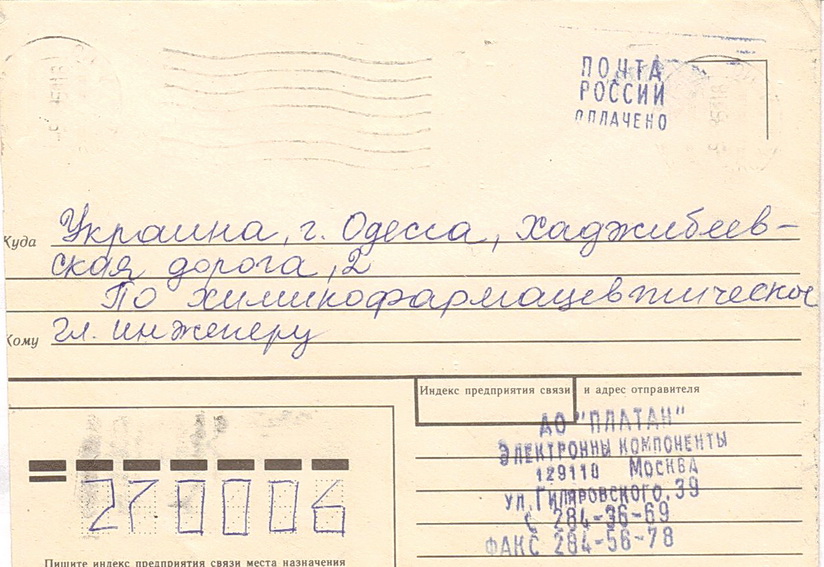 ПОЧТА
РОССИИ
ОПЛАЧЕНО
Куда Украина, г. Одесса, Хаджибеев-
ская дорога, 2
ПО химикофармацевтическое
Кому гл. инженеру
Индекс предприятия связи и адрес отправителя
АО "ПЛАТАН"
ЭЛЕКТРОННЫ КОМПОНЕНТЫ
129110 МОСКВА
УЛ. ГИЛЯРОВСКОГО, 39
284-36-69
ФАКС 284-56-78
270006
Пишите индекс предприятия связи места назначения